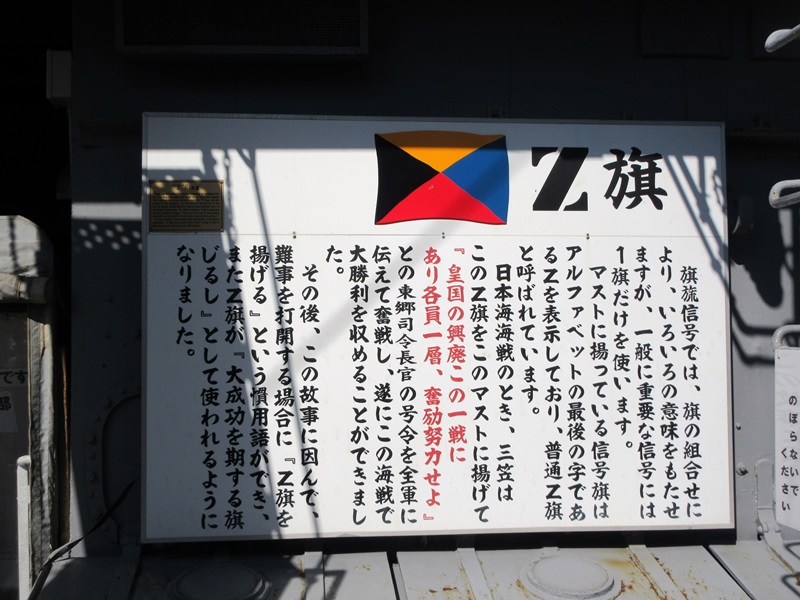 Z旗
旗旒信号では、旗の組合せに
より、いろいろの意味をもたせ
ますが、一般に重要な信号には
1旗だけを使います。
マストに揚っている信号旗は
アルファベットの最後の字であ
るZを表示しており、普通Z旗
と呼ばれています。
日本海海戦のとき、三笠は
このZ旗をこのマストに揚げて
『皇国の興廃この一戦に
あり各員一層、奮励努力せよ』
との東郷司令長官の号令を全軍に
伝えて奮戦し、遂にこの海戦で
大勝利を収めることができまし
た。
その後、この故事に因んで、
難事を打開する場合に『Z旗を
揚げる』という慣用語ができ、
またZ旗が『大成功を期する旗
じるし』として使われるように
なりました。
のぼらないで
ください
です
部